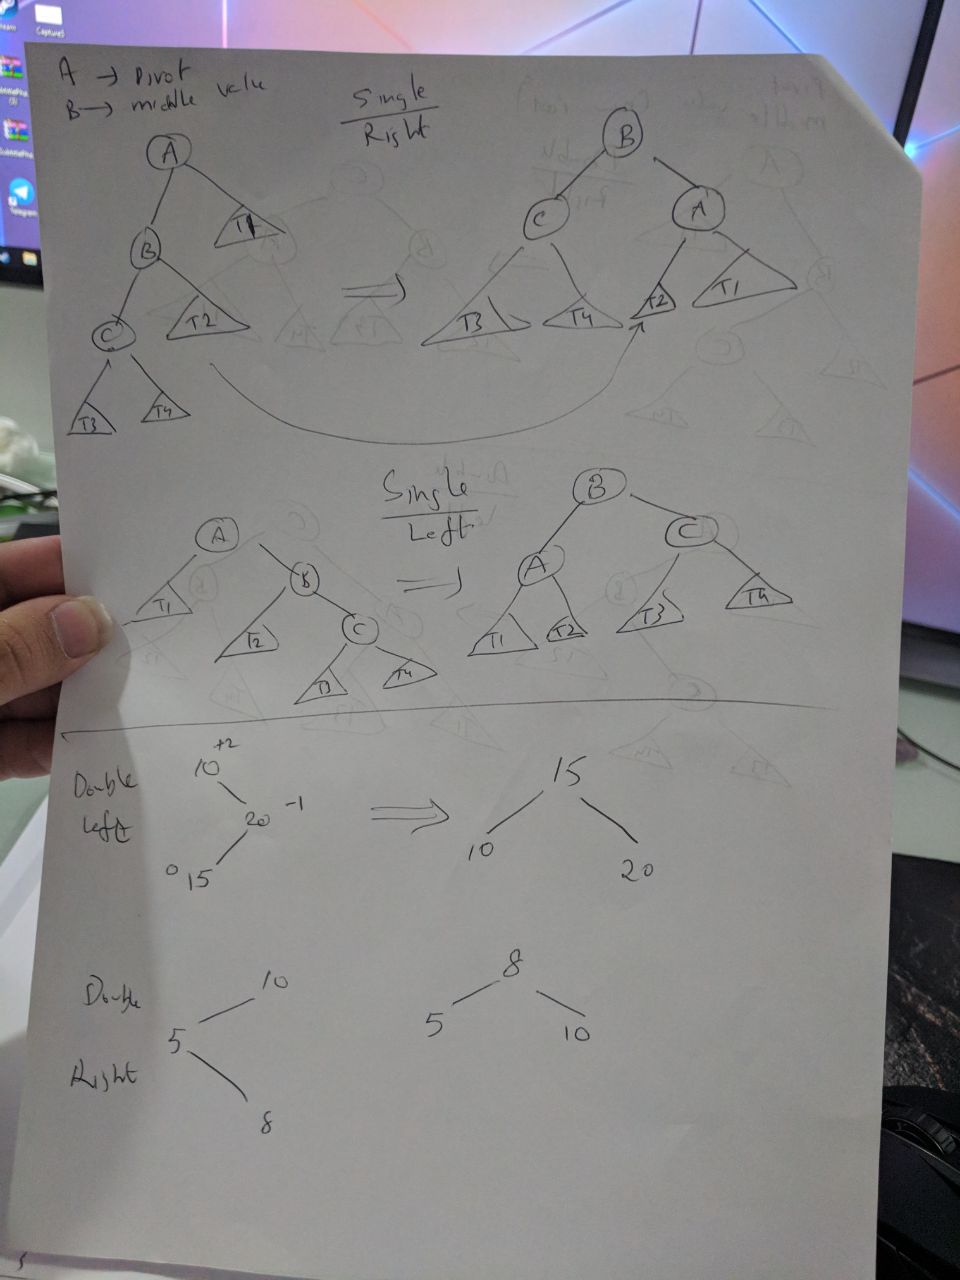 Capture5
Telegram
A → Pivot
B → middle value
Single
Right
A
T1
B
T2
C
T3
T4
B
C
A
T3
T4
T2
T1
Single
Left
A
T1
B
T2
C
T3
T4
B
A
C
T1
T2
T3
T4
Double
left
10 +2
20 -1
0 15
15
10
20
Double
Right
10
5
8
8
5
10